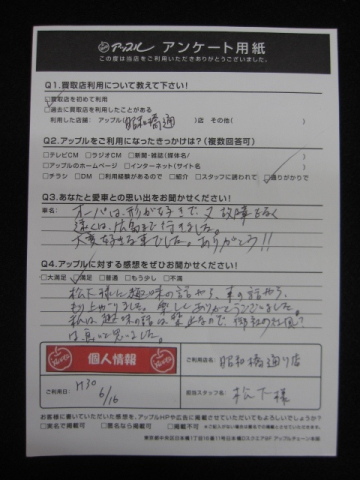 アップル アンケート用紙
この度は当店をご利用いただきありがとうございました。
Q1.買取店利用について教えて下さい!
□買取店を初めて利用
□過去に買取店を利用したことがある
利用した店舗: アップル(昭和橋通)店 その他( )
Q2.アップルをご利用になったきっかけは?(複数回答可)
□テレビCM □ラジオCM □新聞・雑誌(媒体名/ )
□アップルのホームページ □インターネット(サイト名 )
□チラシ □DM □利用経験があるので □紹介 □スタッフに誘われて □通りがかりで
Q3.あなたと愛車との思い出をお聞かせください!
車名: オーパは、形が好きで、又故障もなく
遠くは、広島まで行けました。
大変好きな車でした。ありがとう!!
Q4.アップルに対する感想をぜひお聞かせください!
□大満足 □満足 □普通 □もう少し □不満
松下様に趣味の話やら、車の話やら、
盛り上がりました。楽しくありがとうございました。
私は、趣味の話は
は良いと思いました。
個人情報
ご利用店名: 昭和橋通り店
ご利用日: H30 6/16
担当スタッフ名: 松下様
お客様に書いていただいた感想を、アップルHPや広告に掲載させていただいてもよろしいでしょうか?
□実名で掲載可 □匿名なら掲載可 □掲載不可